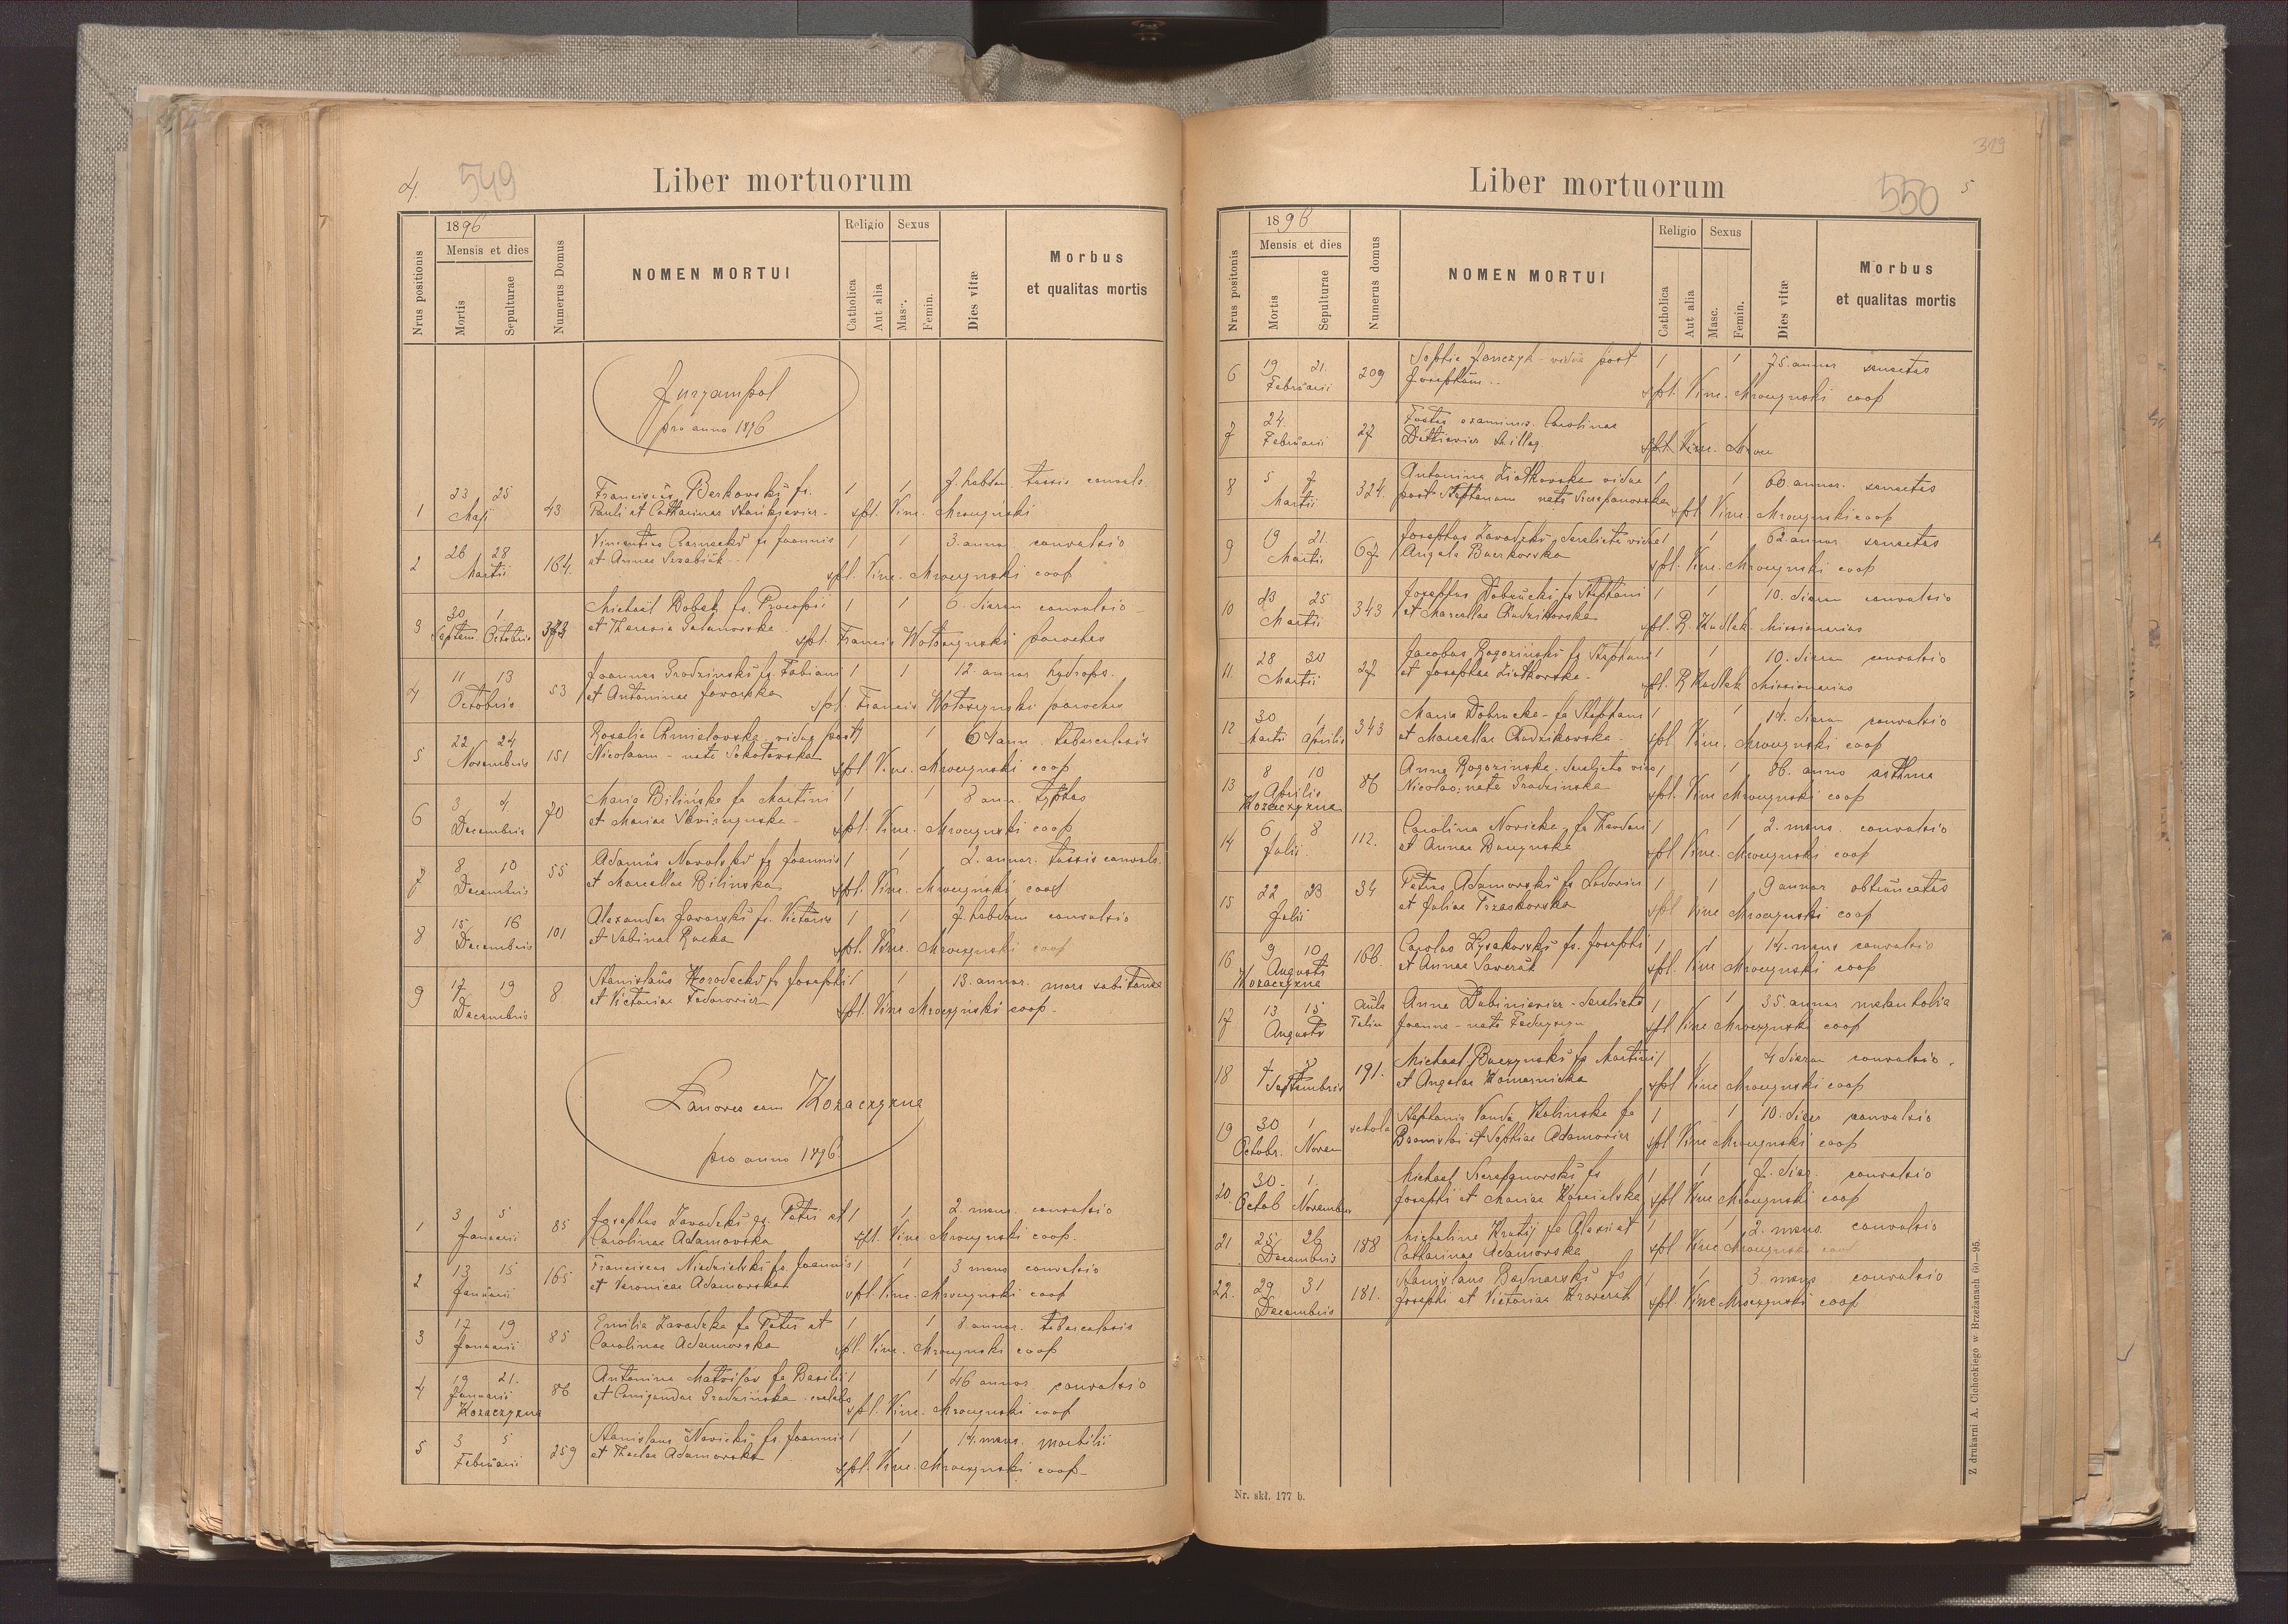 4.
549
Liber mortuorum
1896
Nrus positionis
Mensis et dies
Mortis
Sepulturae
Numerus Domus
NOMEN MORTUI
Religio
Catholica
Aut alia
Sexus
Masc.
Femin.
Dies vitæ
Morbus
et qualitas mortis
Jurjampol
pro anno 1896
1
23 25
Maji
43
Franciscus Berkowski fs.
Pauli et Catharinae
1 1 7. hebdom. tussis convuls.
spl. Vinc. Mroczyński
2
26 28
Martii
164.
Vincentius Czarnecki fs Joannis
et Annae
1 1 3. annor. convulsio
spl. Vinc. Mroczynski coop
3
30 1
Septem. Octobris
373
Michaël Bobek fs. Procopii
et Theresia
1 1 6. dierum convulsio
spl. Francis Wołoszynski parochus
4
11 13
Octobris
53
Joannes Grodzinski fs. Fabiani
et Antoninae Jaworska
1 1 12. annor hydrops.
spl. Francis Wołoszynski parochus
5
22 24
Novembris
151
Rosalia Chmielowska vidua post
Nicolaum - nata Sokołowska
1 1 64 ann tuberculosis
spl. Vinc. Mroczynski coop
6
3 4
Decembris
70
Maria Bilińska fa Martini
et Mariae
1 1 8 ann. typhus
spl. Vinc. Mroczynski coop
7
8 10
Decembris
55
Adamus Nowalski fs Joannis
et Marcellae Bilinska
1 1 2. annor. tussis convuls.
spl. Vinc. Mroczyński coop
8
15 16
Decembris
101
Alexander Jaworski fs. Victoris
et Sabinae Rucka
1 1 7. hebdom convulsio
spl. Vinc. Mroczyński coop
9
17 19
Decembris
8
Stanislaus Horodecki fs Josephi
et Victoriae Fedorowicz
1 1 13. annor. mors subitanea
spl. Vinc Mroczyński coop.
Łanowce cum Kozaczyzna
pro anno 1896.
1
3 5
Januarii
85
Josephus Zawadzki fs. Petri et
Carolinae Adamowska
1 1 2. mens. convulsio
spl. Vinc. Mroczynski coop.
2
13 15
Januarii
165
Franciscus Niedzielski fs. Joannis
et Veronicae Adamowska
1 1 3 mens convulsio
spl. Vinc. Mroczynski coop
3
17 19
Januarii
85
Emilia Zawadzka fa Petri et
Carolinae Adamowska
1 1 8. annor. tuberculosis
spl. Vinc. Mroczynski coop
4
19 21.
Januarii
Kozaczyzna
86
Antonina fa Basilii
et Cunigundae Grodzińska
1 1 46 annor convulsio
spl. Vinc. Mroczynski coop
5
3 5
Februarii
259
Stanislaus Nowicki fs. Joannis
et Theclae Adamowska
1 1 14. mens. morbilii
spl. Vinc. Mroczynski coop.
319
Liber mortuorum
550
5
1896
Nrus positonis
Mensis et dies
Mortis
Sepulturae
Numerus domus
NOMEN MORTUI
Religio
Catholica
Aut alia
Sexus
Masc.
Femin.
Dies vitæ
Morbus
et qualitas mortis
6
19 21.
Februarii
209
Sophia Janczyk - vidua post
Josephum.
1 1 75. annor senectus
spl. Vinc. Mroczynski coop
7
24.
Februarii
27
Foetus exanimis. Carolinae
spl. Vinc.
8
5 7
Martii
324.
Antonina Ziołkowska vidua
post Stephanum nata Szczepanowska
1 1 60 annor. senectus
spl Vinc. Mroczynski coop
9
19 21.
Martii
67
Josephus Zawadzki, derelicta vidua
Angela Buczkowska
1 1 62 annor senectus
spl. Vinc. Mroczynski coop
10
23 25
Martii
343
Josephus Dobrucki fs Stephani
et Marcellae Chudzikowska
1 1 10. dierum convulsio
spl. R. Kudlek. Missionarius
11.
28 30
Martii
27
Jacobus Rogozinski fs Stephani
et Josephae Ziołkowska
1 1 10. dierum convulsio
spl. R Kudlek Missionarius
12
30 1
Martii Aprilis
343
Maria Dobrucka - fa Stephani
et Marcellae Chudzikowska
1 1 14. dierum convulsio
spl. Vinc. Mroczynski coop
13
8 10
Aprilis
Kozaczyzna
86
Anna Rogozinska. derelicto viro
Nicolao, nata Grodzinska
1 1 86. anno asthma
spl. Vinc Mroczynski coop
14
6 8
Julii
112.
Carolina Nowicka, fa Theodori
et Annae Buczynska
1 1 2. mens. convulsio
spl Vinc. Mroczynski coop
15
22 23
Julii
34
Petrus Adamowski fs Ludovici
et Juliae Trzaskowska
1 1 9 annor obtruncatus
spl Vinc Mroczynski coop
16
9 10
Augusti
Kozaczyzna
166.
Carolus Zyzakowski fs. Josephi
et Annae Sawczuk
1 1 14. mens convulsio
spl. Vinc Mroczynski coop
17
13 15
Augusti
Anna Dubiniewicz - derelicto
Joanne - nata
1 1 35. annor melankolia
spl Vinc Mroczynski coop
18
4 5
Septembris
191.
Michael Buczynski fs Martini
et Angelae Komarnicka
1 1 4 dierum convulsio.
spl Vinc Mroczynski coop
19
30 1
Octobr. Novem
schola
Stephania Vanda Kalinska fa
Bronislai et Sophiae Adamowicz
1 1 10. dier convulsio
spl Vinc Mroczynski coop
20.
30. 1.
Octob Novembris
Michael Szczepanowski fs
Josephi et Mariae Koscielska
1 1 7. dier. convulsio
spl Vinc Mroczynski coop
21
25 26
Decembris
188
Michalina Krutij fa Alexii et
Catharinae Adamowska
1 1 2. mens. convulsio
spl Vinc Mroczynski coop
22.
29 31
Decembris
181.
Stanislaus Bednarski fs
Josephi et Victoriae Krawczuk
1 1 3. mens convulsio
spl. Vinc Mroczynski coop
Nr. skł. 177 b.
Z drukarni A. Cichockiego w Brzeżanach 60—95.